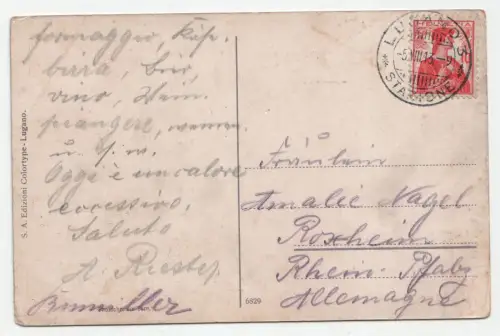 formaggio, Käse
birra, Bier,
vino, Wein
piangere, weinen
u. s. w.
Oggi è un calore
eccessivo.
Saluto
A. Riester
S. A. Edizioni Colortype - Lugano.
LUGANO 3
STAZIONE
HELVETIA
Fräulein
Amalie Nagel
Roxheim
Rhein-Pfalz
Allemagne
5929